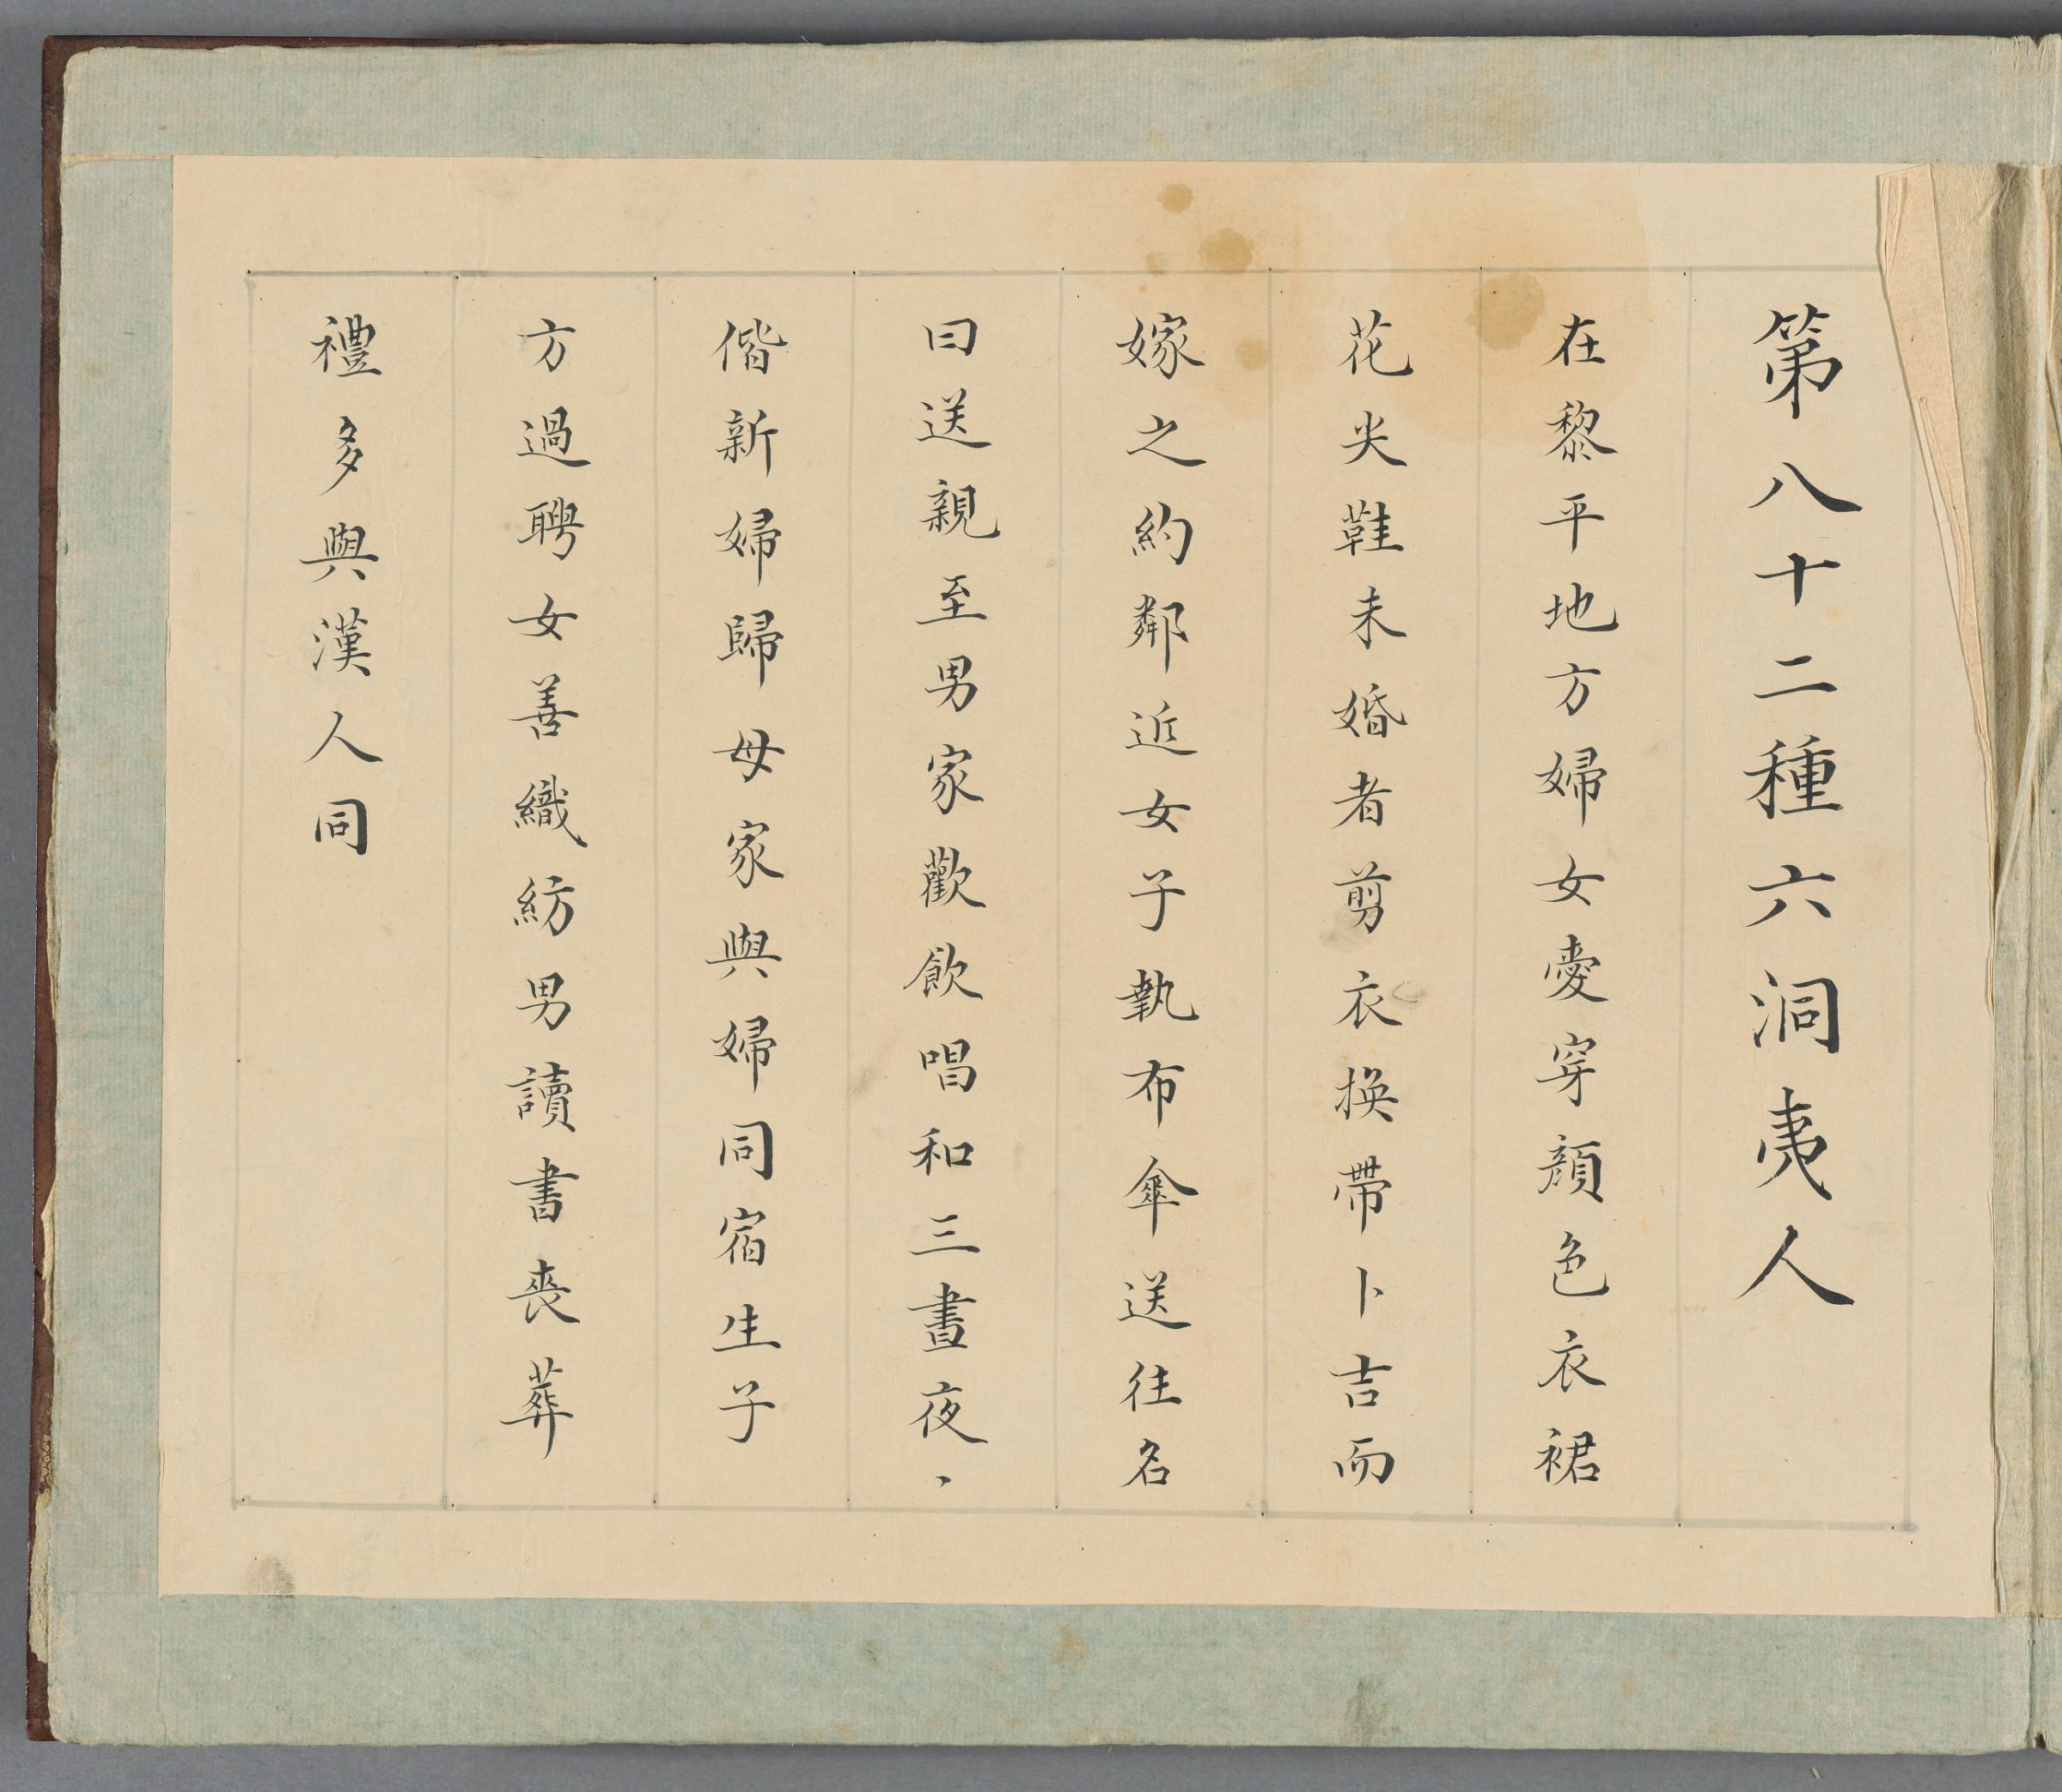 第八十二種六洞夷人
在黎平地方婦女愛穿顏色衣裙
花尖鞋未婚者剪衣換帶卜吉而
嫁之約鄰近女子執布傘送往名
曰送親至男家歡飲唱和三晝夜、
偕新婦歸母家與婦同宿生子
方過聘女善織紡男讀書喪葬
禮多與漢人同